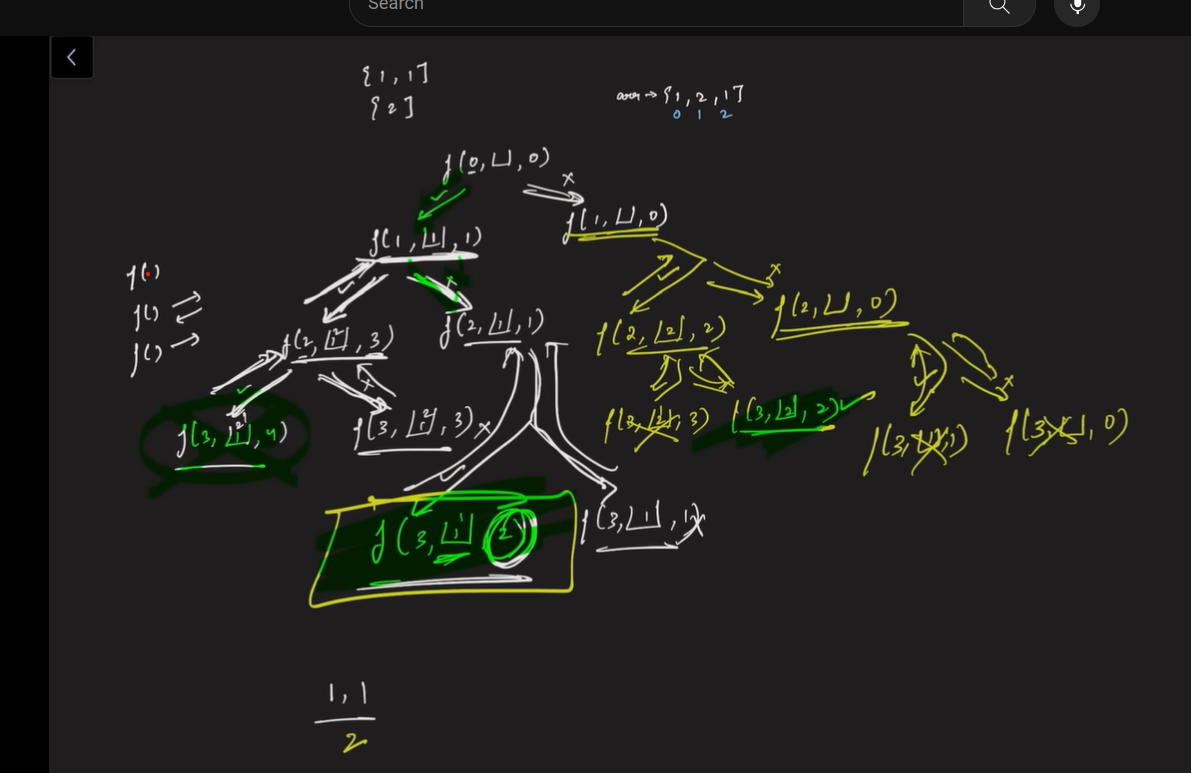 Search
{1, 1]
{2]
arr → {1, 2, 1]
0 1 2
f(0, ⊔, 0)
✓ x
f(1, ⊔, 0)
f(1, |1|, 1)
f( )
f( )
f( )
✓ x ✓ x
f(2, ⊔, 0)
f(2, |1 2|, 3) f(2, |1|, 1) f(2, |2|, 2)
✓ x x
f(3, |1 2 1|, 4) f(3, |1 2|, 3) x f(3, 3) f(3, |2|, 2) ✓ f(3, 1) f(3, ⊔, 0)
✓
f(3, |1 1| 2) f(3, |1|, 1) x
1, 1
2